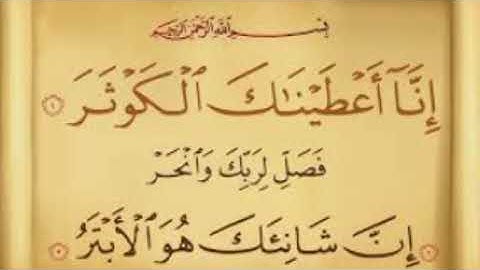 بِسْمِ اللَّهِ الرَّحْمَٰنِ الرَّحِيمِ
إِنَّآ أَعْطَيْنَٰكَ ٱلْكَوْثَرَ ١
فَصَلِّ لِرَبِّكَ وَٱنْحَرْ
٢ إِنَّ شَانِئَكَ هُوَ ٱلْأَبْتَرُ ٣